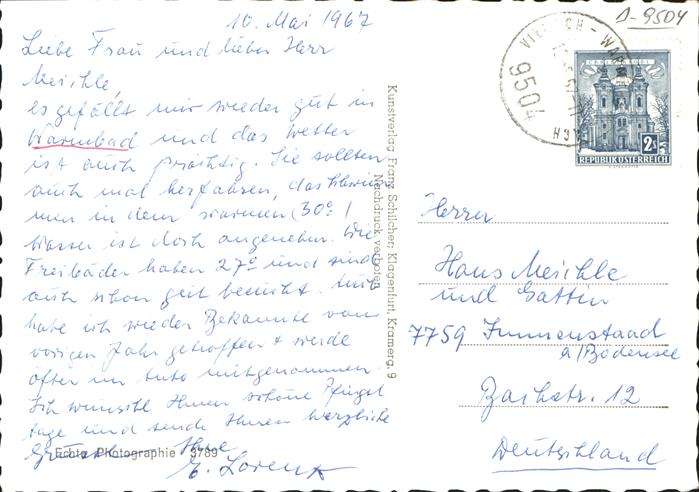 10. Mai 1967
Liebe Frau und lieber Herr
Meichle,
es gefällt mir wieder gut in
Warmbad und das Wetter
ist auch prächtig. Sie sollten
auch mal herfahren, das Schwim
men in dem warmen (30°)
Wasser ist doch angenehm. Die
Freibäder haben 27° und sind
auch schon gut besucht. Auch
habe ich wieder Bekannte vom
vorigen Jahr getroffen + werde
öfter im Auto mitgenommen.
Ich wünsche Ihnen schöne Pfingst
tage und sende Ihnen herzliche
Grüsse Ihre
E. Lorenz
Echte Photographie 3789
Kunstverlag Franz Schilcher, Klagenfurt, Kramerg. 9
Nachdruck verboten
A-9504
VILLACH - WARMBAD
9504
2 S
REPUBLIK ÖSTERREICH
Herrn
Hans Meichle
und Gattin
7759 Immenstaad
a/Bodensee
Bachstr. 12
Deutschland